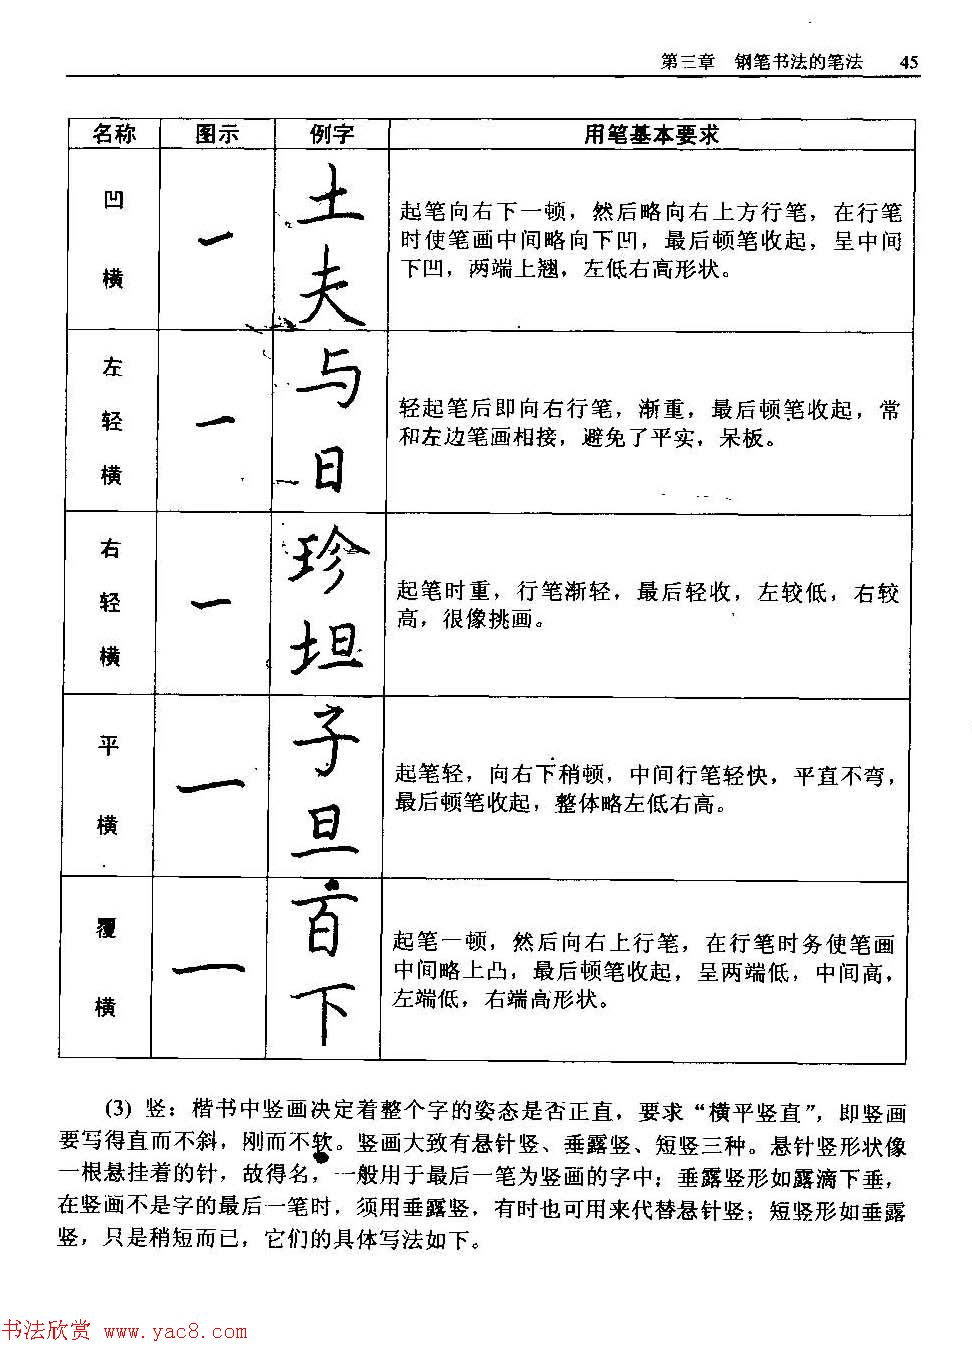 第三章 钢笔书法的笔法 45
名称 图示 例字 用笔基本要求
凹横
土
夫
起笔向右下一顿，然后略向右上方行笔，在行笔
时使笔画中间略向下凹，最后顿笔收起，呈中间
下凹，两端上翘，左低右高形状。
左轻横
与
日
轻起笔后即向右行笔，渐重，最后顿笔收起，常
和左边笔画相接，避免了平实，呆板。
右轻横
珍
坦
起笔时重，行笔渐轻，最后轻收，左较低，右较
高，很像挑画。
平横
子
旦
起笔轻，向右下稍顿，中间行笔轻快，平直不弯，
最后顿笔收起，整体略左低右高。
覆横
百
下
起笔一顿，然后向右上行笔，在行笔时务使笔画
中间略上凸，最后顿笔收起，呈两端低，中间高，
左端低，右端高形状。
(3) 竖：楷书中竖画决定着整个字的姿态是否正直，要求“横平竖直”，即竖画
要写得直而不斜，刚而不软。竖画大致有悬针竖、垂露竖、短竖三种。悬针竖形状像
一根悬挂着的针，故得名，一般用于最后一笔为竖画的字中；垂露竖形如露滴下垂，
在竖画不是字的最后一笔时，须用垂露竖，有时也可用来代替悬针竖；短竖形如垂露
竖，只是稍短而已，它们的具体写法如下。
书法欣赏 www.yac8.com